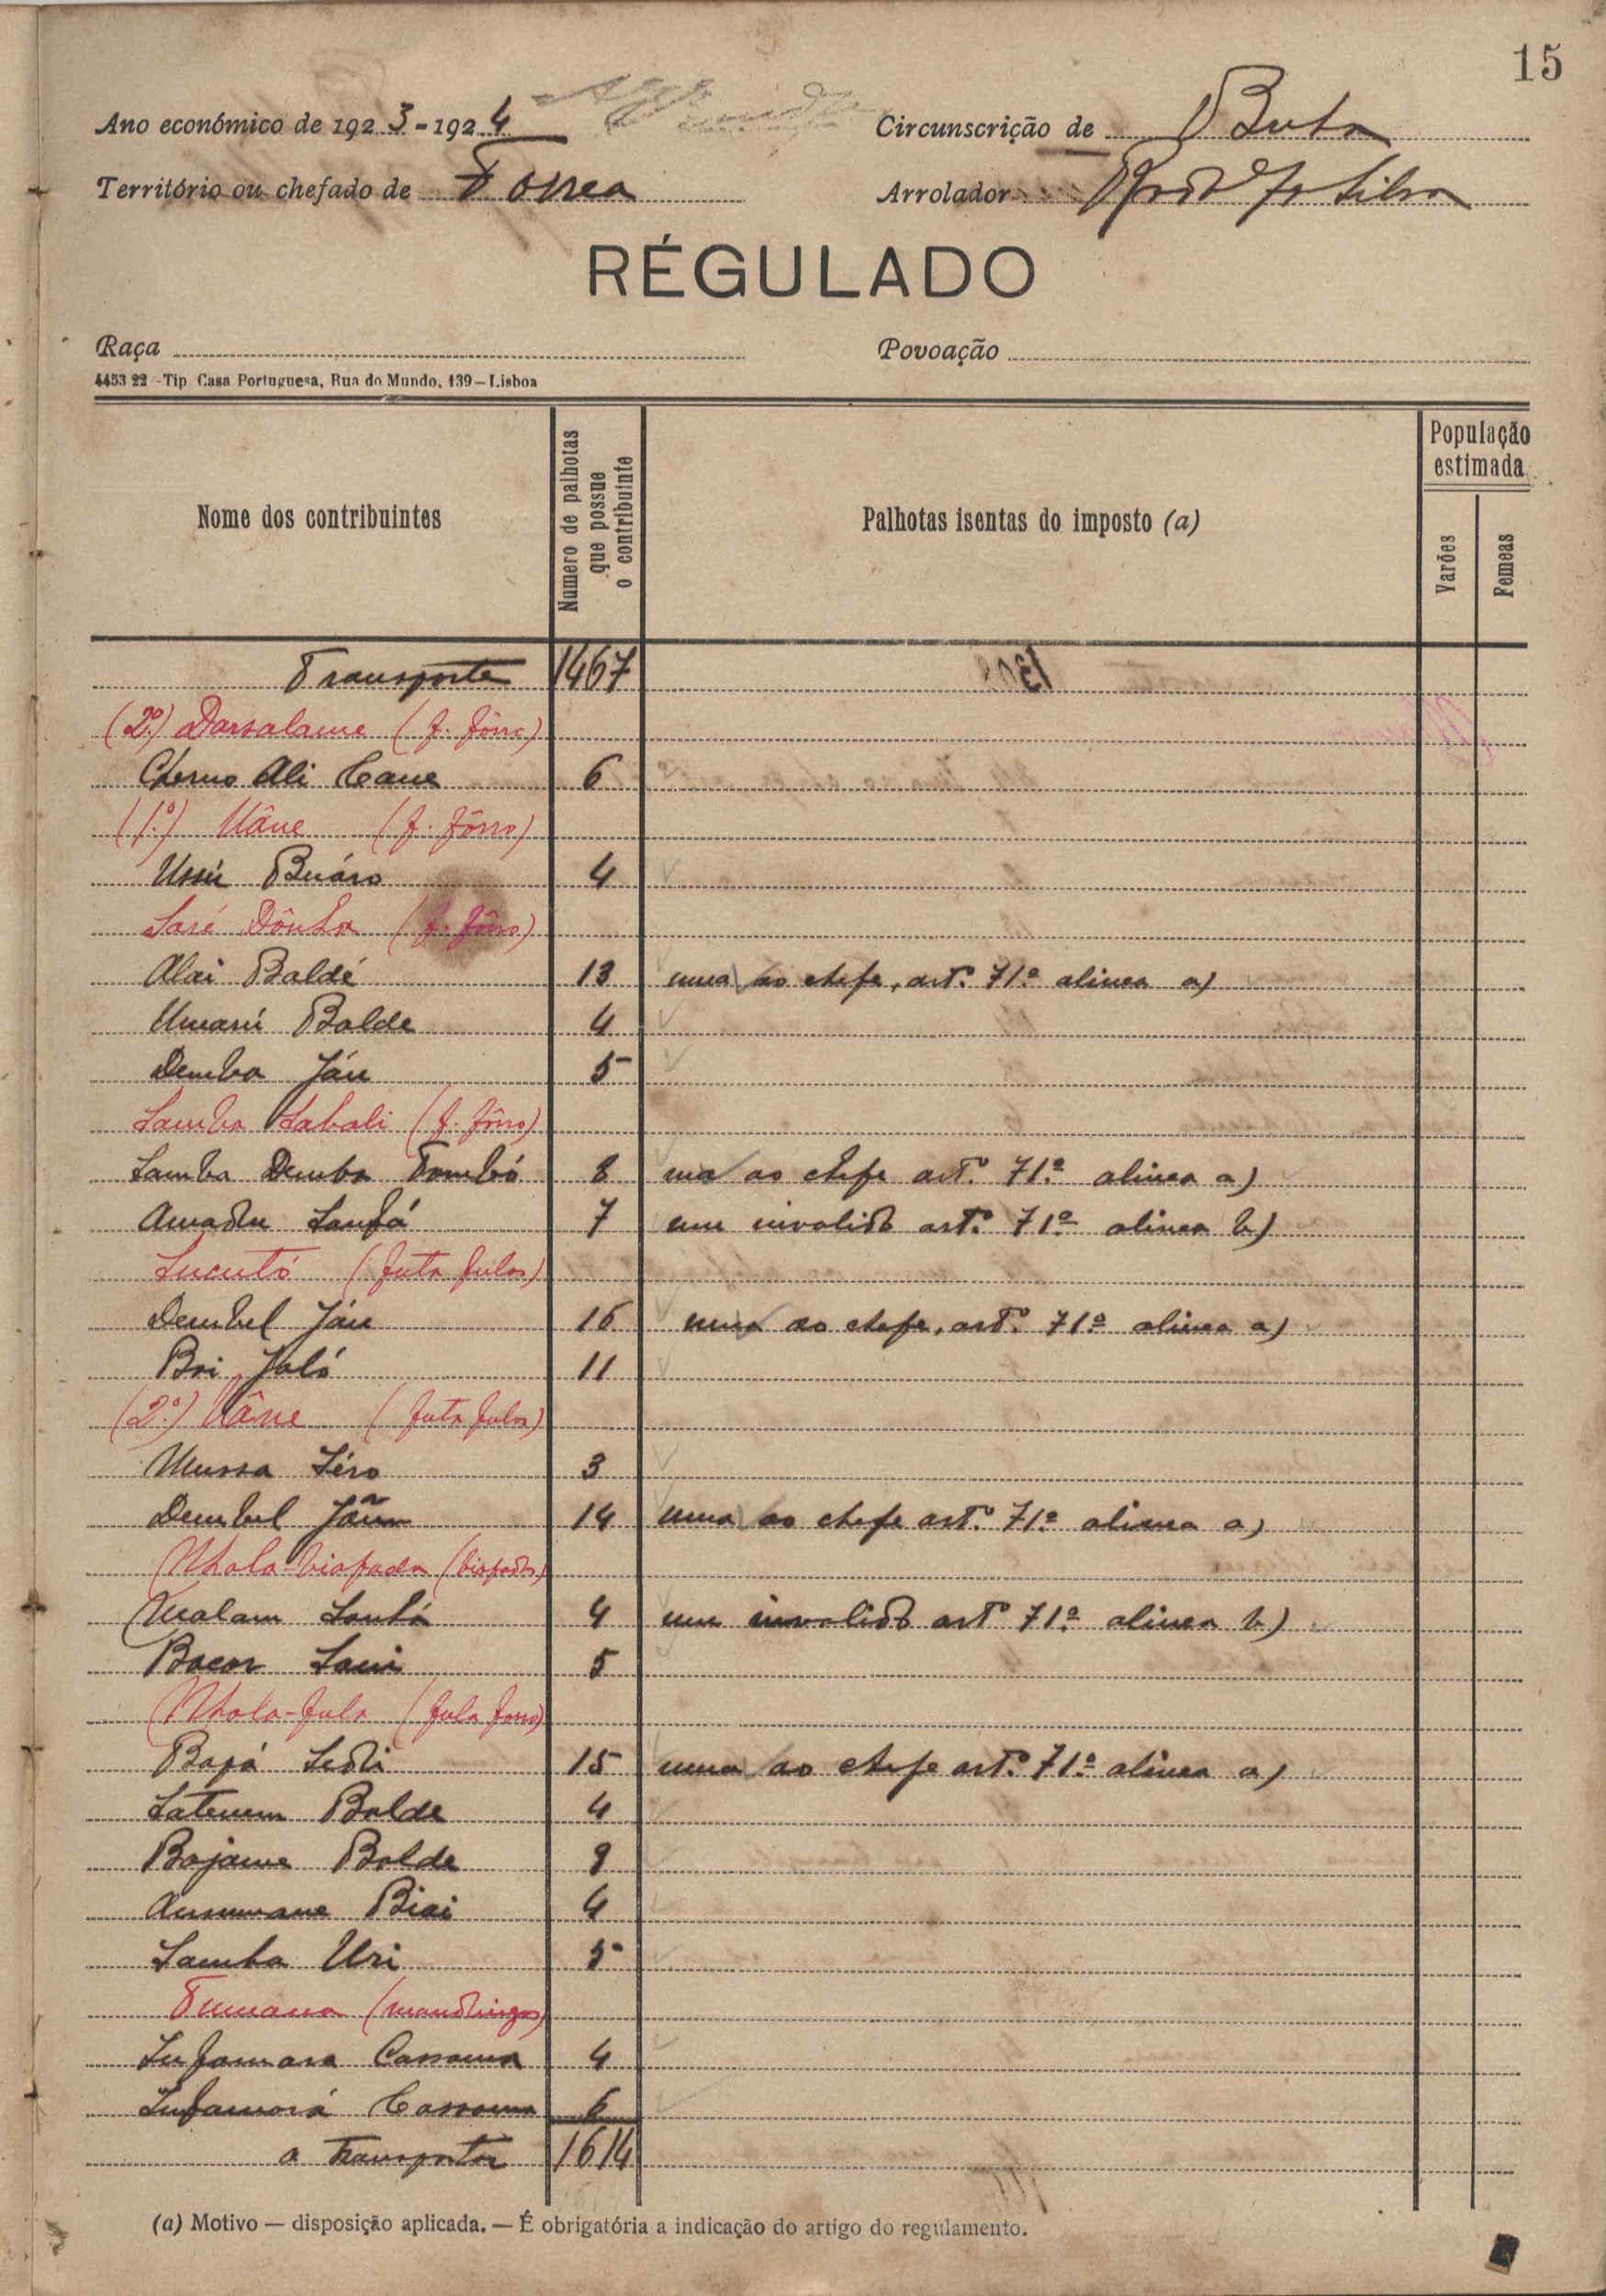 15
Ano económico de 1923-1924
Circunscrição de Buba
Território ou chefado de Forrea
Arrolador Silva
RÉGULADO
Raça
Povoação
4453 22 - Tip. Casa Portuguesa, Rua do Mundo, 139 - Lisboa
Nome dos contribuintes
Numero de palhotas que possue o contribuinte
Palhotas isentas do imposto (a)
População estimada
Varões
Femeas
Transporte 1467
(2º) Darsalame (f. fôrro)
Cherno Ali Cane 6
(1º) Uâne (f. fôrro)
Ussú Buáro 4
Saré Dônha (f. fôrro)
Alai Baldé 13 uma ao chefe, artº 71º alinea a)
Umarú Balde 4
Demba Jáu 5
Samba Sabali (f. fôrro)
Samba Demba Tombó 8 uma ao chefe artº 71º alinea a)
Amadu Sanhá 7 um invalido artº 71º alinea b)
Sucutó (futa fulas)
Dembel Jáu 16 uma ao chefe, artº 71º alinea a)
Boi Jaló 11
(2º) Uâne (futa fulas)
Mussa Séro 3
Dembel Jáu 14 uma ao chefe artº 71º alinea a)
Nhala-biafada (biafadas)
Malam Sanhá 4 um invalido artº 71º alinea b)
Bacar Sani 5
Nhala-fula (fula forro)
Bapá Seidi 15 uma ao chefe artº 71º alinea a)
Balde 4
Bojame Balde 9
Ansumane Biai 4
Samba Uri 5
Tumana (mandingas)
Infamara Cassama 4
Infamará Cassama 6
a transportar 1614
(a) Motivo — disposição aplicada. — É obrigatória a indicação do artigo do regulamento.